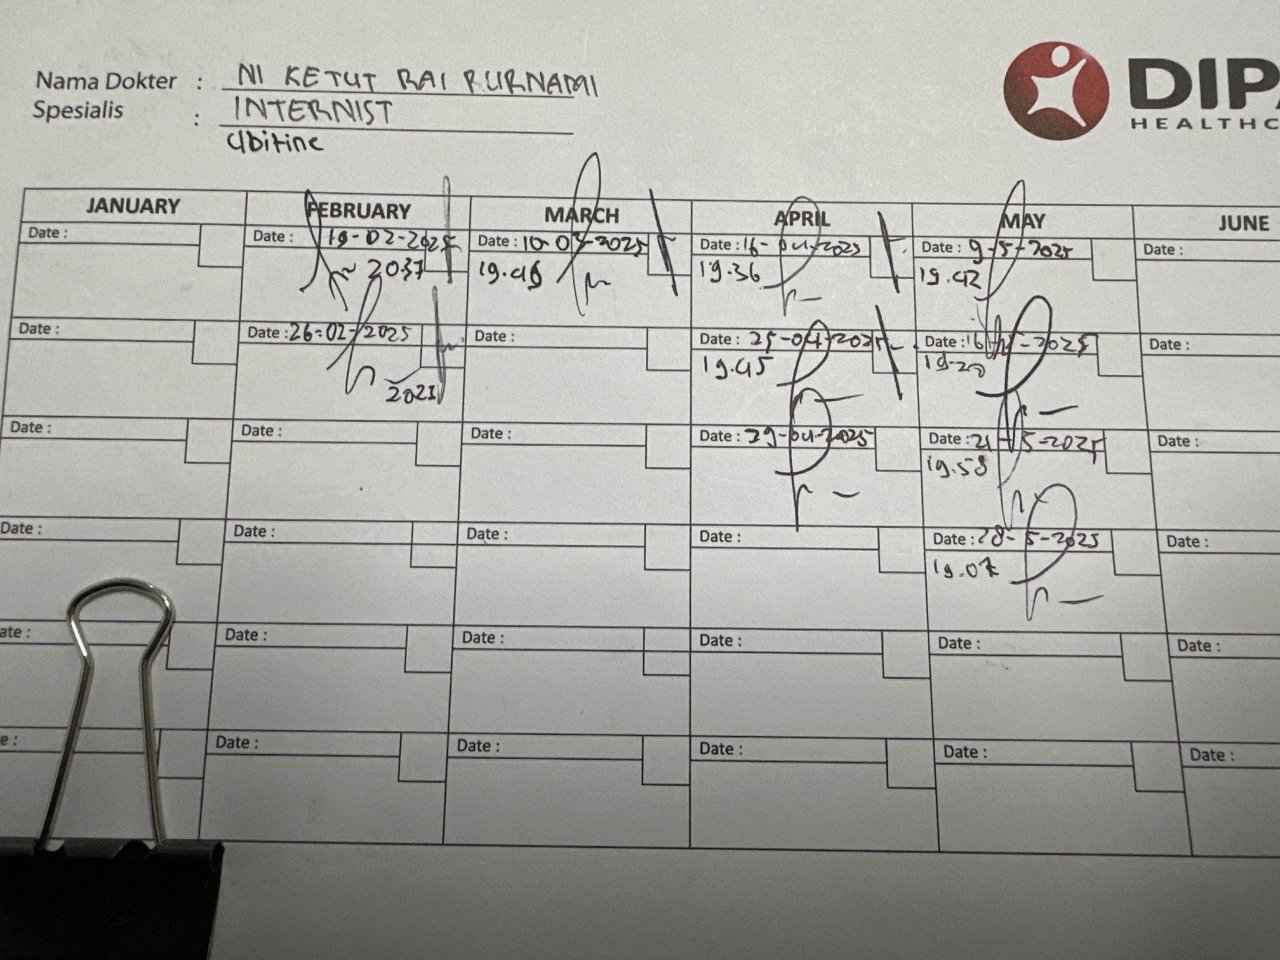 Nama Dokter : NI KETUT RAI PURNAMI
Spesialis : INTERNIST
Ubitine
DIPA
HEALTHC
JANUARY FEBRUARY MARCH APRIL MAY JUNE
Date : Date : 19-02-2025 Date : 10-03-2025 Date : 16-04-2025 Date : 9-5-2025 Date :
2037 19.46 19.36 19.42
Date : Date : 26-02-2025 Date : Date : 25-04-2025 Date : 16-5-2025 Date :
2021 19.45 19-20
Date : Date : Date : Date : 29-04-2025 Date : 21-5-2025 Date :
19.58
Date : Date : Date : Date : Date : 28-5-2025 Date :
19.07
ate : Date : Date : Date : Date : Date :
e : Date : Date : Date : Date : Date :